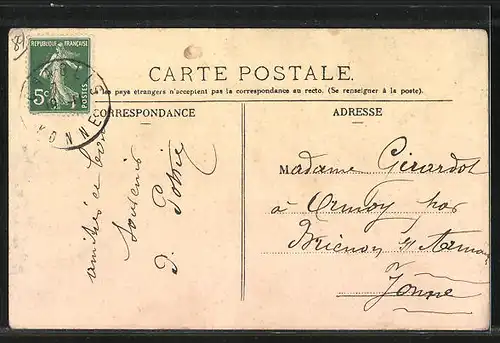 89
REPUBLIQUE FRANÇAISE
5c POSTES
YONNE
CARTE POSTALE
les pays étrangers n'acceptent pas la correspondance au recto. (Se renseigner à la poste).
CORRESPONDANCE
ADRESSE
amitiés et bon
souvenir
Madame Girardot
à Ormoy par
Brienon s/ Arman
Yonne